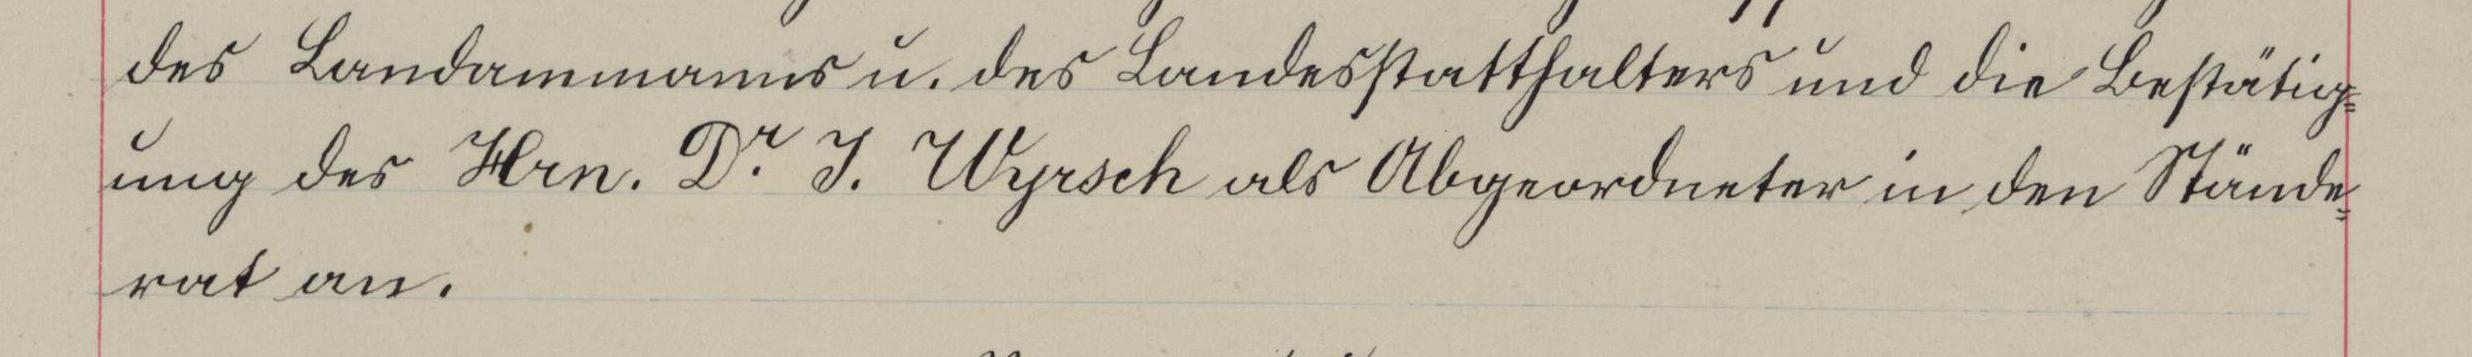 des Landammanns u. des Landesstatthalters und die Bestätig=
ung des Hrn. Dr. J. Wyrsch als Abgeordneter in den Stände=
rat an.